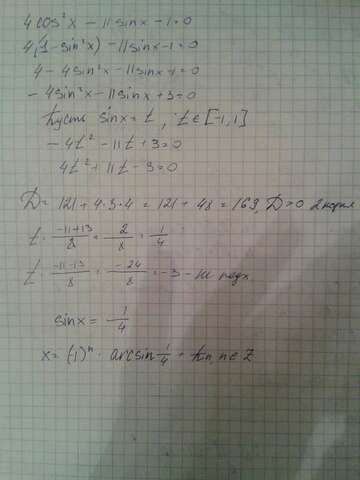 4cos²x - 11sinx - 1 = 0
4(1 - sin²x) - 11sinx - 1 = 0
4 - 4sin²x - 11sinx - 1 = 0
- 4sin²x - 11sinx + 3 = 0
Пусть sinx = t, t ∈ [-1, 1]
- 4t² - 11t + 3 = 0
4t² + 11t - 3 = 0
D = 121 + 4·3·4 = 121 + 48 = 169, D > 0 2 корня
t = (-11+13)/8 = 2/8 = 1/4
t = (-11-13)/8 = -24/8 = -3 - не подх.
sinx = 1/4
x = (-1)ⁿ · arcsin 1/4 + πn, n ∈ Z